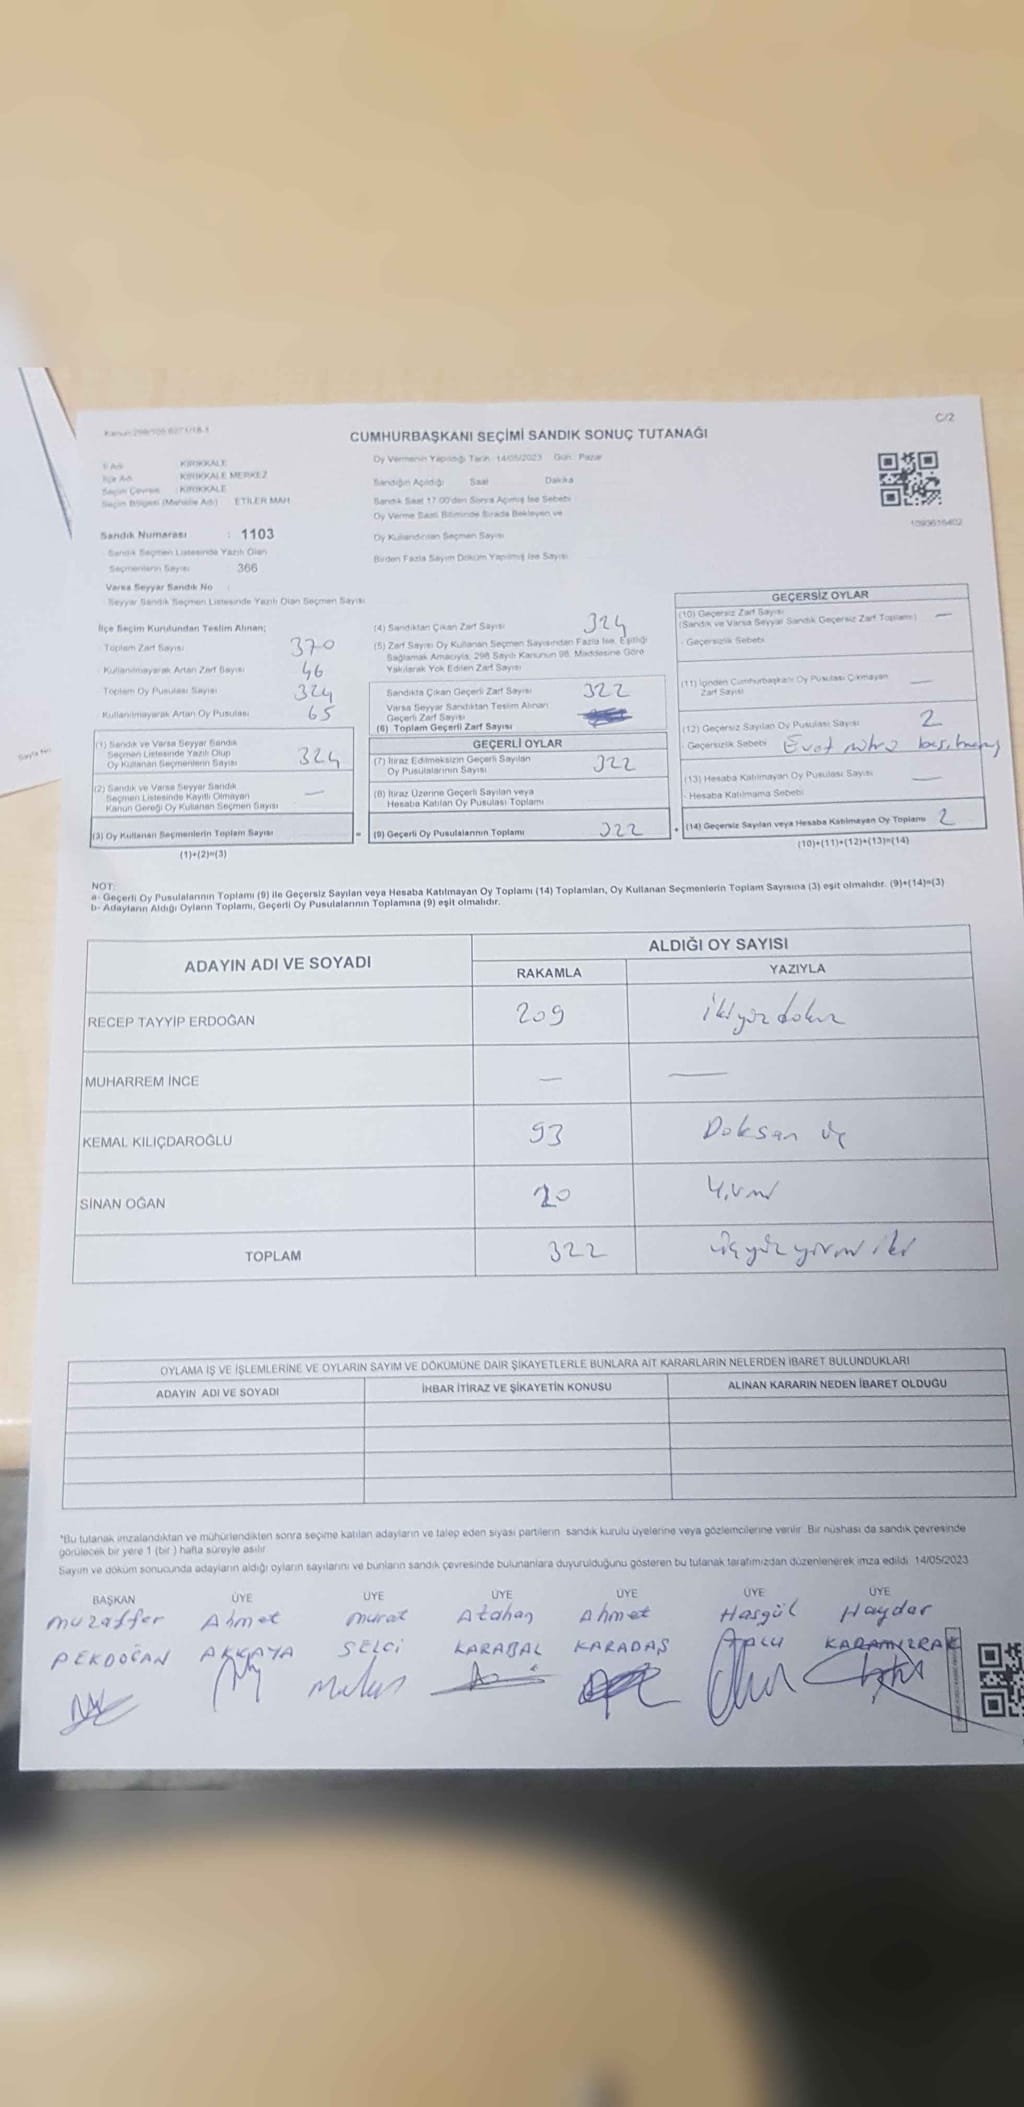 C/2
CUMHURBAŞKANI SEÇİMİ SANDIK SONUÇ TUTANAĞI
İl Adı KIRIKKALE
İlçe Adı KIRIKKALE MERKEZ
Seçim Çevresi : KIRIKKALE
Seçim Bölgesi (Mahalle Adı) ETİLER MAH.
Oy Vermenin Yapıldığı Tarih: 14/05/2023 Gün: Pazar
Sandığın Açıldığı Saat Dakika
Sandık Saat 17:00'den Sonra Açılmış İse Sebebi
Oy Verme Saati Bitiminde Sırada Bekleyen ve
Oy Kullandırılan Seçmen Sayısı
Birden Fazla Sayım Döküm Yapılmış İse Sayısı
Sandık Numarası : 1103
Sandık Seçmen Listesinde Yazılı Olan
Seçmenlerin Sayısı 366
Varsa Seyyar Sandık No :
Seyyar Sandık Seçmen Listesinde Yazılı Olan Seçmen Sayısı
İlçe Seçim Kurulundan Teslim Alınan;
Toplam Zarf Sayısı 370
Kullanılmayarak Artan Zarf Sayısı 46
Toplam Oy Pusulası Sayısı 324
Kullanılmayarak Artan Oy Pusulası 65
(1) Sandık ve Varsa Seyyar Sandık
Seçmen Listesinde Yazılı Olup
Oy Kullanan Seçmenlerin Sayısı 324
(2) Sandık ve Varsa Seyyar Sandık
Seçmen Listesinde Kayıtlı Olmayan
Kanun Gereği Oy Kullanan Seçmen Sayısı —
(3) Oy Kullanan Seçmenlerin Toplam Sayısı
(1)+(2)=(3)
=
(4) Sandıktan Çıkan Zarf Sayısı 324
(5) Zarf Sayısı Oy Kullanan Seçmen Sayısından Fazla İse, Eşitliği
Sağlamak Amacıyla, 298 Sayılı Kanunun 98. Maddesine Göre
Yakılarak Yok Edilen Zarf Sayısı
Sandıkta Çıkan Geçerli Zarf Sayısı 322
Varsa Seyyar Sandıktan Teslim Alınan
Geçerli Zarf Sayısı
(6) Toplam Geçerli Zarf Sayısı
GEÇERLİ OYLAR
(7) İtiraz Edilmeksizin Geçerli Sayılan
Oy Pusulalarının Sayısı 322
(8) İtiraz Üzerine Geçerli Sayılan veya
Hesaba Katılan Oy Pusulası Toplamı
(9) Geçerli Oy Pusulalarının Toplamı 322
+
GEÇERSİZ OYLAR
(10) Geçersiz Zarf Sayısı
(Sandık ve Varsa Seyyar Sandık Geçersiz Zarf Toplamı) —
- Geçersizlik Sebebi
(11) İçinden Cumhurbaşkanı Oy Pusulası Çıkmayan
Zarf Sayısı —
(12) Geçersiz Sayılan Oy Pusulası Sayısı 2
- Geçersizlik Sebebi Evet
(13) Hesaba Katılmayan Oy Pusulası Sayısı —
- Hesaba Katılmama Sebebi
(14) Geçersiz Sayılan veya Hesaba Katılmayan Oy Toplamı 2
(10)+(11)+(12)+(13)=(14)
NOT:
a- Geçerli Oy Pusulalarının Toplamı (9) ile Geçersiz Sayılan veya Hesaba Katılmayan Oy Toplamı (14) Toplamları, Oy Kullanan Seçmenlerin Toplam Sayısına (3) eşit olmalıdır. (9)+(14)=(3)
b- Adayların Aldığı Oyların Toplamı, Geçerli Oy Pusulalarının Toplamına (9) eşit olmalıdır.
ADAYIN ADI VE SOYADI ALDIĞI OY SAYISI
RAKAMLA YAZIYLA
RECEP TAYYİP ERDOĞAN 209 ikiyüz dokuz
MUHARREM İNCE — —
KEMAL KILIÇDAROĞLU 93 Doksan üç
SİNAN OĞAN 20 Yirmi
TOPLAM 322 üçyüz yirmi iki
OYLAMA İŞ VE İŞLEMLERİNE VE OYLARIN SAYIM VE DÖKÜMÜNE DAİR ŞİKAYETLERLE BUNLARA AİT KARARLARIN NELERDEN İBARET BULUNDUKLARI
ADAYIN ADI VE SOYADI İHBAR İTİRAZ VE ŞİKAYETİN KONUSU ALINAN KARARIN NEDEN İBARET OLDUĞU
*Bu tutanak imzalandıktan ve mühürlendikten sonra seçime katılan adayların ve talep eden siyasi partilerin sandık kurulu üyelerine veya gözlemcilerine verilir. Bir nüshası da sandık çevresinde
görülecek bir yere 1 (bir ) hafta süreyle asılır.
Sayım ve döküm sonucunda adayların aldığı oyların sayılarını ve bunların sandık çevresinde bulunanlara duyurulduğunu gösteren bu tutanak tarafımızdan düzenlenerek imza edildi. 14/05/2023
BAŞKAN ÜYE ÜYE ÜYE ÜYE ÜYE ÜYE
muzaffer Ahmet murat Atahan Ahmet Hasgül Haydar
PEKDOĞAN AKKAYA SELCİ KARABAL KARADAŞ